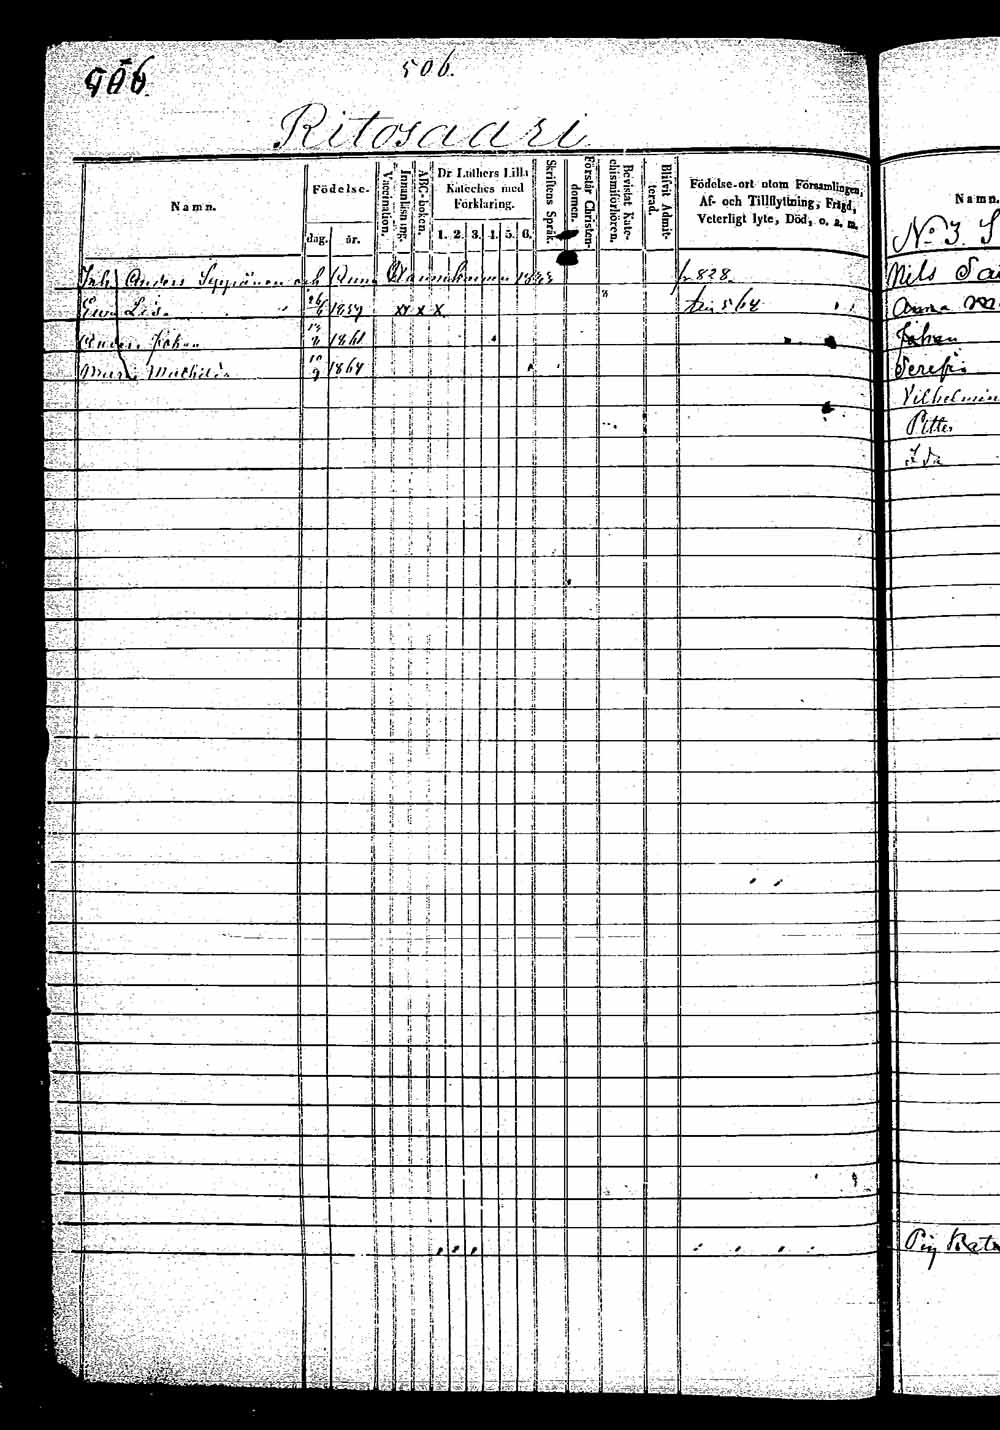 506.
506.
Ritosaari
Namn.
Födelse.
dag. år.
Vaccination.
Innanläsning.
ABC-boken.
Dr Luthers Lilla Kateches med Förklaring.
1. 2. 3. 4. 5. 6.
Skriftens Språk.
Förstår Christendomen.
Bevistat Katechismiförhören.
Blifvit Admitterad.
Födelse-ort utom Församlingen, Af- och Tillflyttning, Frägd, Veterligt lyte, Död, o. s. m.
Inh. Anders Seppänen och Anna fr 828
Ewa Lis. 26/6 1859 x x x x 564
Anders Johan 1861
Maria Mathilda 10/9 1864
Namn.
No 3. S
Nils Sai
Anna Ma
Johan
Serefia
Vilhelmin
Pitter
Ida
Pig Kata